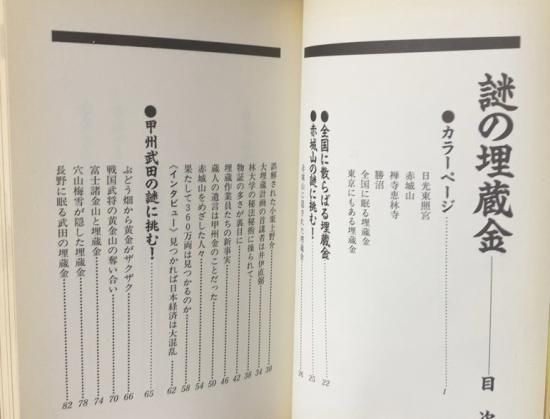 謎の埋蔵金――目次
●カラーページ……1
日光東照宮
赤城山
禅寺恵林寺
勝沼
全国に眠る埋蔵金
東京にもある埋蔵金
●全国に散らばる埋蔵金……22
●赤城山の謎に挑む!……25
赤城山に隠された埋蔵金……26
誤解された小栗上野介……30
大埋蔵計画の首謀者は井伊直弼……34
林大学の秘法秘術に操られて……38
物証の多さが裏目に……42
埋蔵作業員たちの新事実……46
蔵人の遺言は甲州金のことだった……50
赤城山をめざした人々……54
果たして360万両は見つかるのか……58
〈インタビュー〉見つかれば日本経済は大混乱……62
●甲州武田の謎に挑む!……65
ぶどう畑から黄金がザクザク……66
戦国武将の黄金山の奪い合い……70
富士諸金山と埋蔵金……74
穴山梅雪が隠した埋蔵金……78
長野に眠る武田の埋蔵金……82